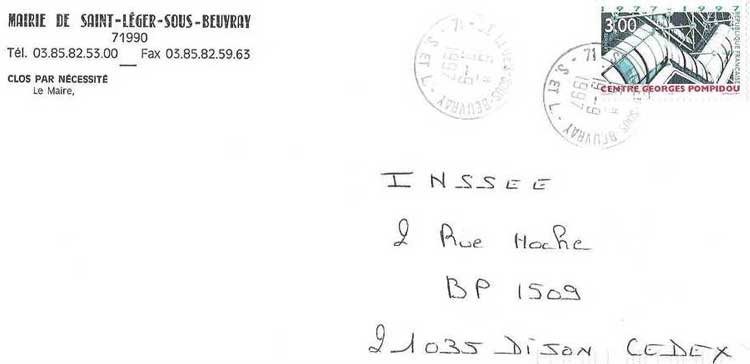 MAIRIE DE SAINT-LÉGER-SOUS-BEUVRAY
71990
Tél. 03.85.82.53.00 Fax 03.85.82.59.63
CLOS PAR NÉCESSITÉ
Le Maire,
1977-1997
3,00
RÉPUBLIQUE FRANÇAISE
CENTRE GEORGES POMPIDOU
SOUS-BEUVRAY - 71
S. ET L.
1997
SOUS-BEUVRAY - 71
S. ET L.
1997
INSSEE
2 Rue Hoche
BP 1509
21035 DIJON CEDEX